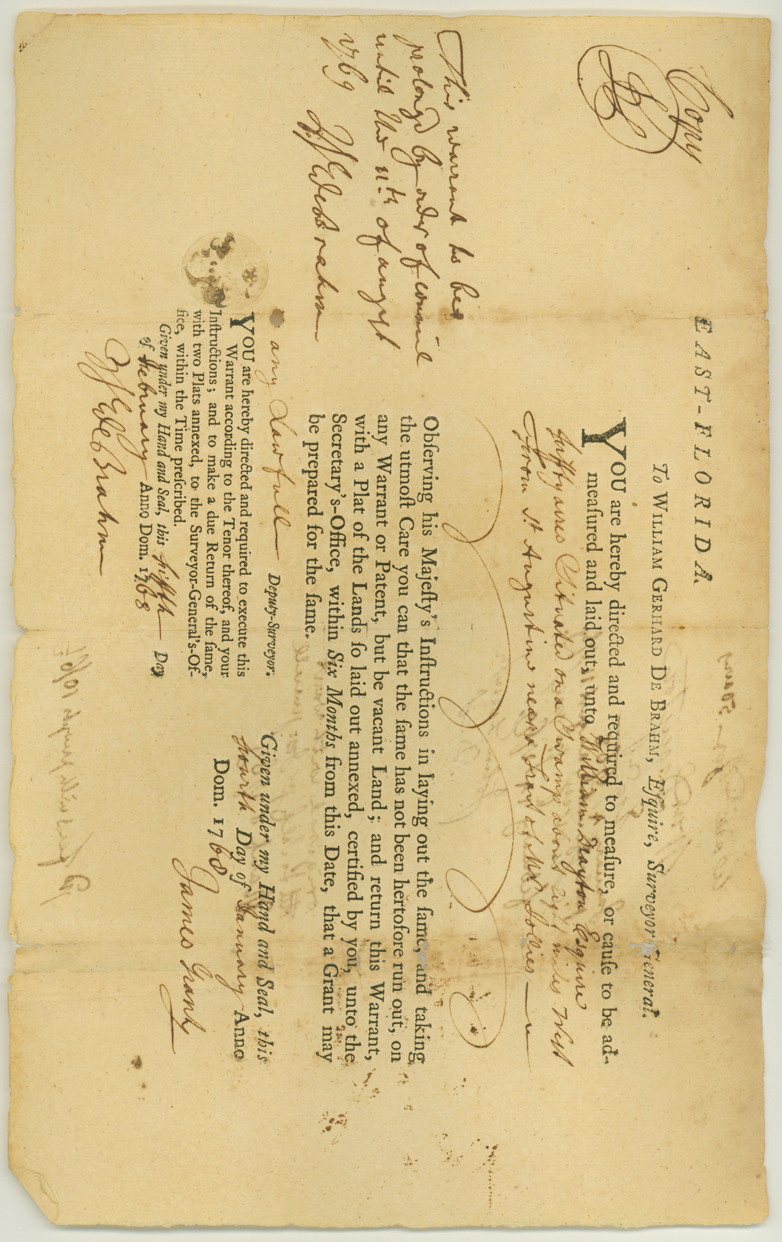 Copy
EAST-FLORIDA.
To WILLIAM GERHARD DE BRAHM, Esquire, Surveyor General.
YOU are hereby directed and required to measure, or cause to be ad-
measured and laid out, unto William Drayton Esquire
fifty acres Situated on a Swamp about eight miles West
from St Augustine near a tract of Mr Jollies
Observing his Majesty's Instructions in laying out the same, and taking
the utmost Care you can that the same has not been hertofore run out, on
any Warrant or Patent, but be vacant Land; and return this Warrant,
with a Plat of the Lands so laid out annexed, certified by you, unto the
Secretary's-Office, within Six Months from this Date, that a Grant may
be prepared for the same.
Given under my Hand and Seal, this
fourth Day of January Anno
Dom. 1768
James Grant
This warrant to be
prolongd by order of councill
until the 11th of augst
1769
WGDeBrahm
any Lawfull Deputy-Surveyor.
YOU are hereby directed and required to execute this
Warrant according to the Tenor thereof, and your
Instructions; and to make a due Return of the same,
with two Plats annexed, to the Surveyor-General's-Of-
fice, within the Time prescribed.
Given under my Hand and Seal, this fifth Day
of February Anno Dom. 1768
WGDeBrahm